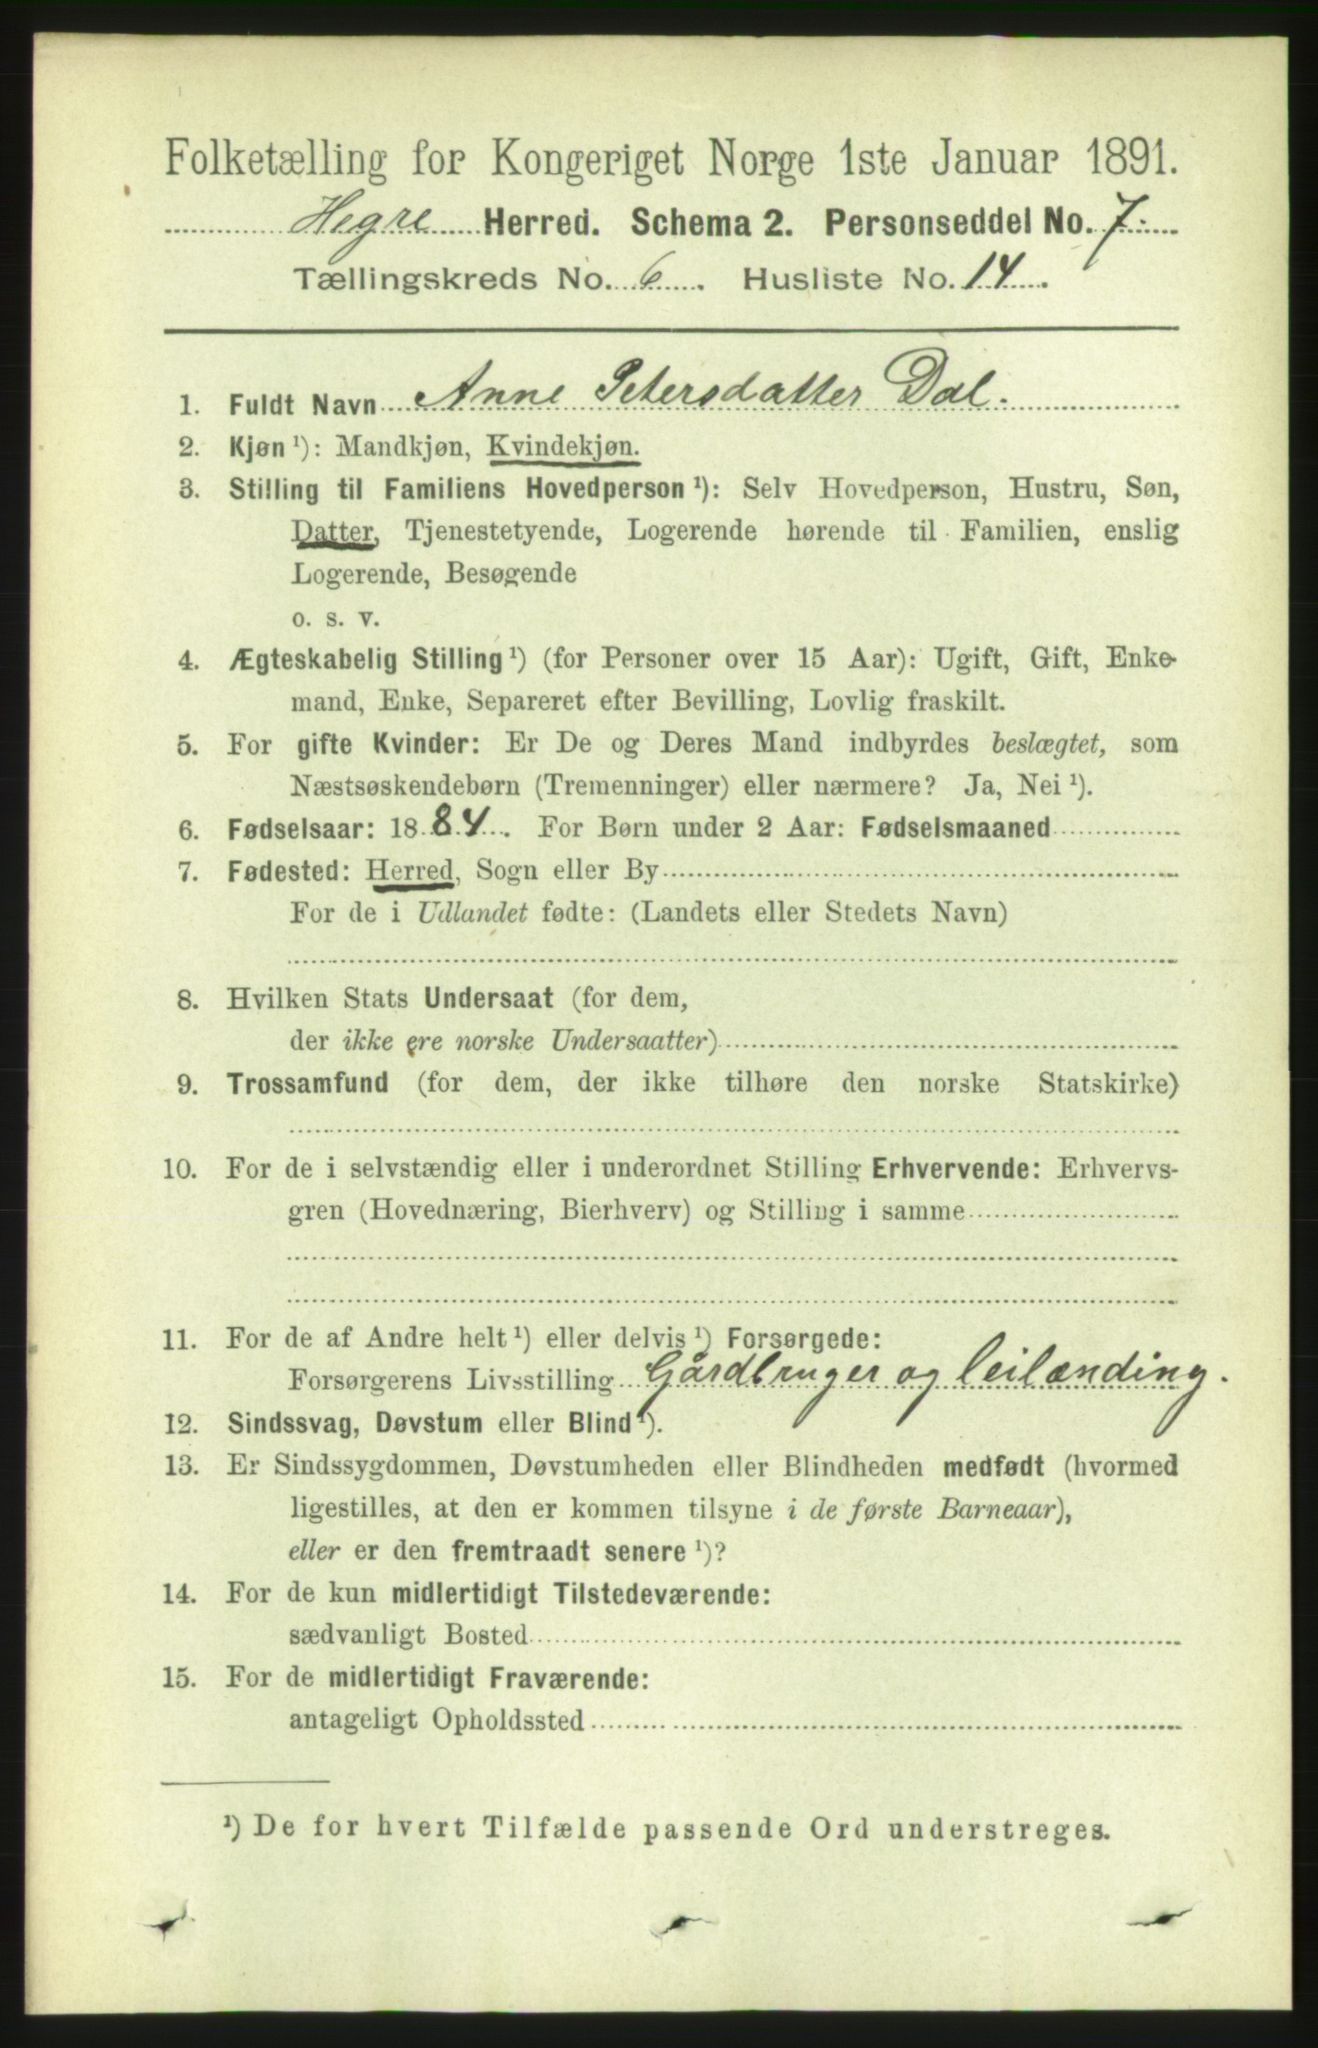 Folketælling for Kongeriget Norge 1ste Januar 1891.
Hegre Herred. Schema 2. Personseddel No. 7.
Tællingskreds No. 6. Husliste No. 14.
1. Fuldt Navn Anne Petersdatter Dal.
2. Kjøn ¹): Mandkjøn, Kvindekjøn.
3. Stilling til Familiens Hovedperson ¹): Selv Hovedperson, Hustru, Søn,
Datter, Tjenestetyende, Logerende hørende til Familien, enslig
Logerende, Besøgende
o. s. v.
4. Ægteskabelig Stilling ¹) (for Personer over 15 Aar): Ugift, Gift, Enke-
mand, Enke, Separeret efter Bevilling, Lovlig fraskilt.
5. For gifte Kvinder: Er De og Deres Mand indbyrdes beslægtet, som
Næstsøskendebørn (Tremenninger) eller nærmere? Ja, Nei ¹).
6. Fødselsaar: 1884. For Børn under 2 Aar: Fødselsmaaned
7. Fødested: Herred, Sogn eller By
For de i Udlandet fødte: (Landets eller Stedets Navn)
8. Hvilken Stats Undersaat (for dem,
der ikke ere norske Undersaatter)
9. Trossamfund (for dem, der ikke tilhøre den norske Statskirke)
10. For de i selvstændig eller i underordnet Stilling Erhvervende: Erhvervs-
gren (Hovednæring, Bierhverv) og Stilling i samme
11. For de af Andre helt ¹) eller delvis ¹) Forsørgede:
Forsørgerens Livsstilling Gårdbruger og leilænding.
12. Sindssvag, Døvstum eller Blind ¹).
13. Er Sindssygdommen, Døvstumheden eller Blindheden medfødt (hvormed
ligestilles, at den er kommen tilsyne i de første Barneaar),
eller er den fremtraadt senere ¹)?
14. For de kun midlertidigt Tilstedeværende:
sædvanligt Bosted
15. For de midlertidigt Fraværende:
antageligt Opholdssted
¹) De for hvert Tilfælde passende Ord understreges.